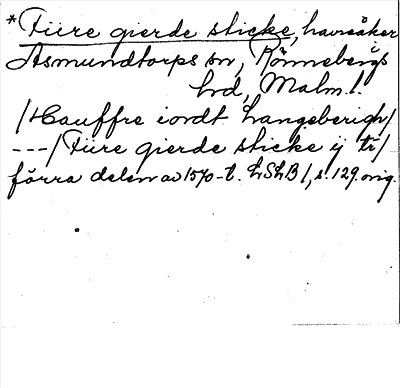 *Fiire gierde sticke, havreåker
Asmundtorps sn, Rönnebergs
hrd, Malm. l.
/Hauffre iordt Langeberigh/
---/Fiire gierde sticke ij tr/
förra delen av 1570-t. LSLB I, s. 129. orig.